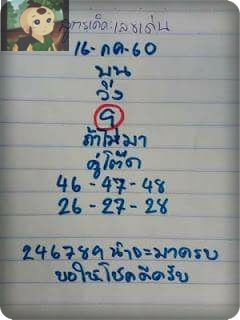 สูตรเด็ดเลขเด่น
16-กค-60
บน
วิ่ง
9
ถ้าไม่มา
คู่โต๊ด
46-47-48
26-27-28
246789 น่าจะมาครบ
ขอให้โชคดีครับ